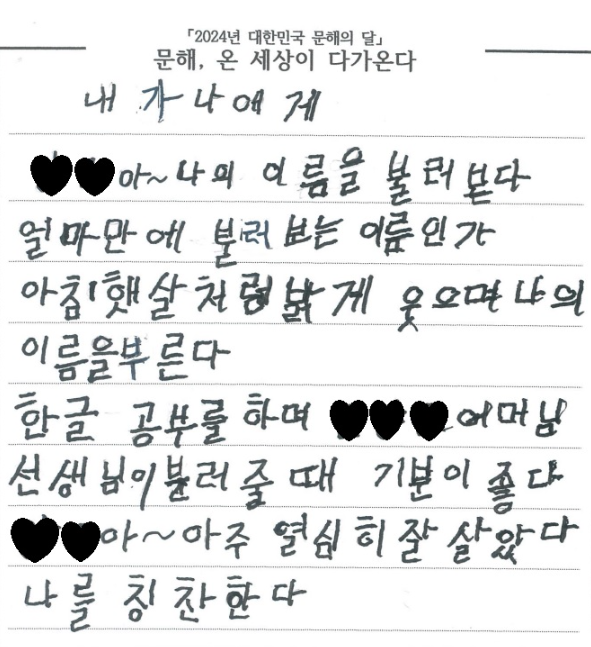 「2024년 대한민국 문해의 달」
문해, 온 세상이 다가온다
내 가 나 에 게
아~ 나의 이름을 불러본다
얼마만에 불러 보는 이름인가
아침햇살처럼 밝게 웃으며 나의
이름을부른다
한글 공부를 하며 어머님
선생님이불러 줄 때 기분이 좋다
아~아주 열심히 잘 살았다
나를 칭찬한다